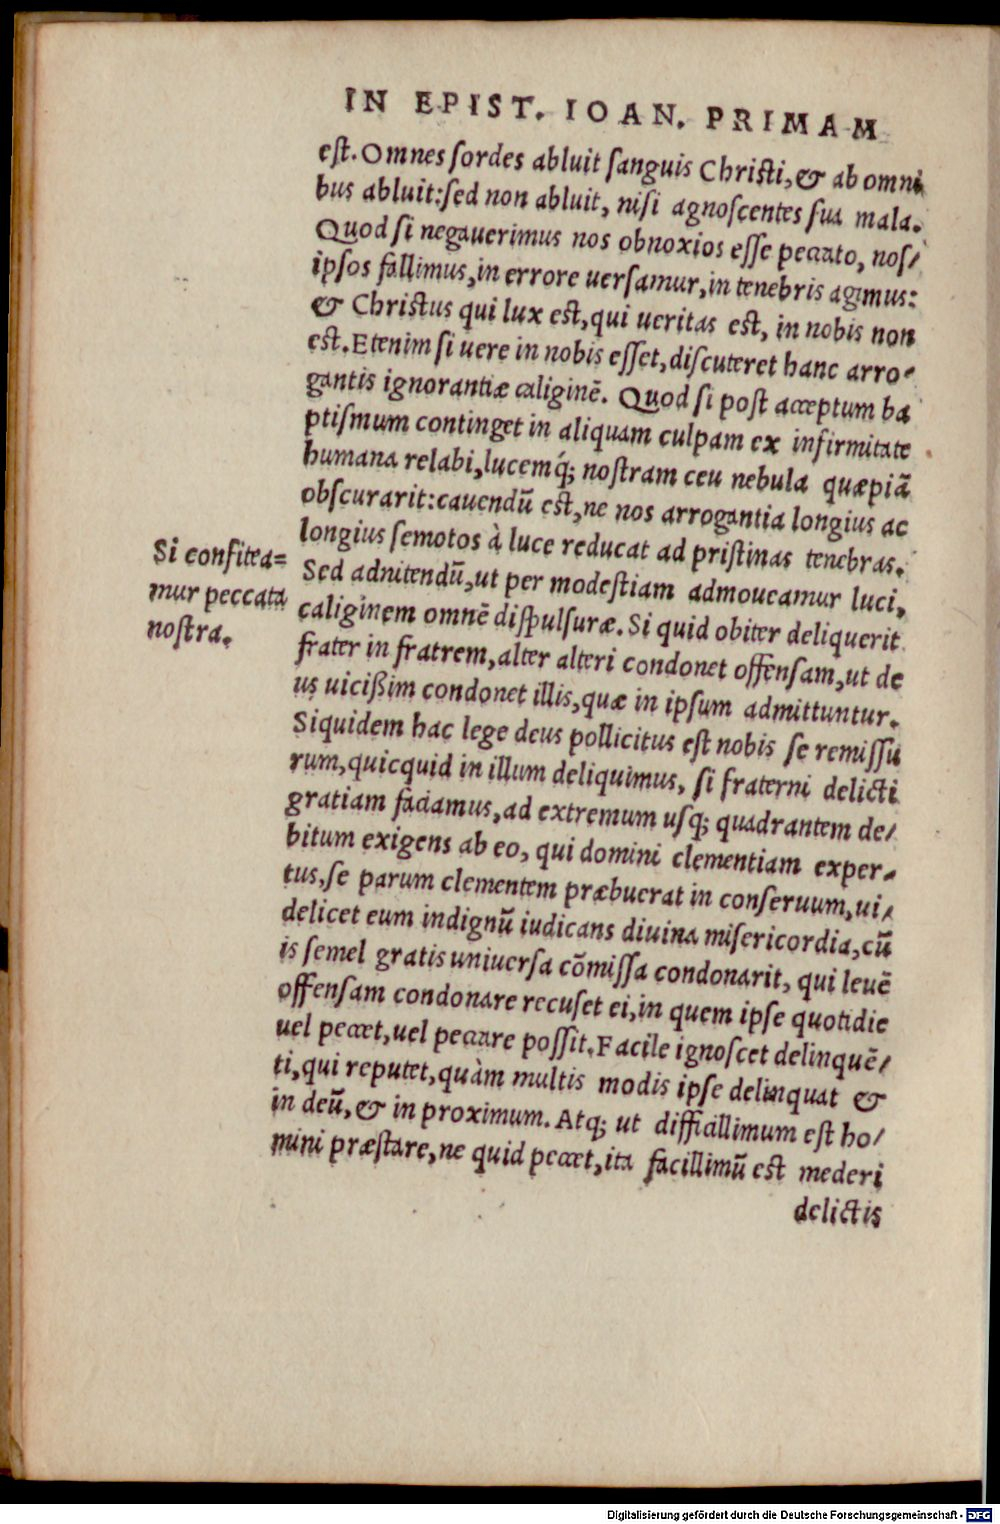 IN EPIST. IOAN. PRIMAM
eſt. Omnes ſordes abluit ſanguis Chriſti, & ab omni
bus abluit: ſed non abluit, niſi agnoſcentes ſua mala.
Quod ſi negauerimus nos obnoxios eſſe peccato, noſ/
ipſos fallimus, in errore uerſamur, in tenebris agimus:
& Chriſtus qui lux eſt, qui ueritas eſt, in nobis non
eſt. Etenim ſi uere in nobis eſſet, diſcuteret hanc arro-
gantis ignorantiæ caliginē. Quod ſi poſt acceptum ba
ptiſmum continget in aliquam culpam ex infirmitate
humana relabi, lucemq́; noſtram ceu nebula quæpiā
obſcurarit: cauendū eſt, ne nos arrogantia longius ac
longius ſemotos à luce reducat ad priſtinas tenebras.
Si confitea=
mur peccata
noſtra.
Sed adnitendū, ut per modeſtiam admoueamur luci,
caliginem omnē diſpulſuræ. Si quid obiter deliquerit
frater in fratrem, alter alteri condonet offenſam, ut de
us uicißim condonet illis, quæ in ipſum admittuntur.
Siquidem hac lege deus pollicitus eſt nobis ſe remiſſu
rum, quicquid in illum deliquimus, ſi fraterni delicti
gratiam faciamus, ad extremum uſq; quadrantem de/
bitum exigens ab eo, qui domini clementiam exper-
tus, ſe parum clementem præbuerat in conſeruum, ui/
delicet eum indignū iudicans diuina miſericordia, cū
is ſemel gratis uniuerſa cōmiſſa condonarit, qui leuē
offenſam condonare recuſet ei, in quem ipſe quotidie
uel peccet, uel peccare poſſit. Facile ignoſcet delinquē/
ti, qui reputet, quàm multis modis ipſe delinquat &
in deū, & in proximum. Atq; ut difficillimum eſt ho/
mini præſtare, ne quid peccet, ita facillimū eſt mederi
delictis
Digitalisierung gefördert durch die Deutsche Forschungsgemeinschaft - DFG